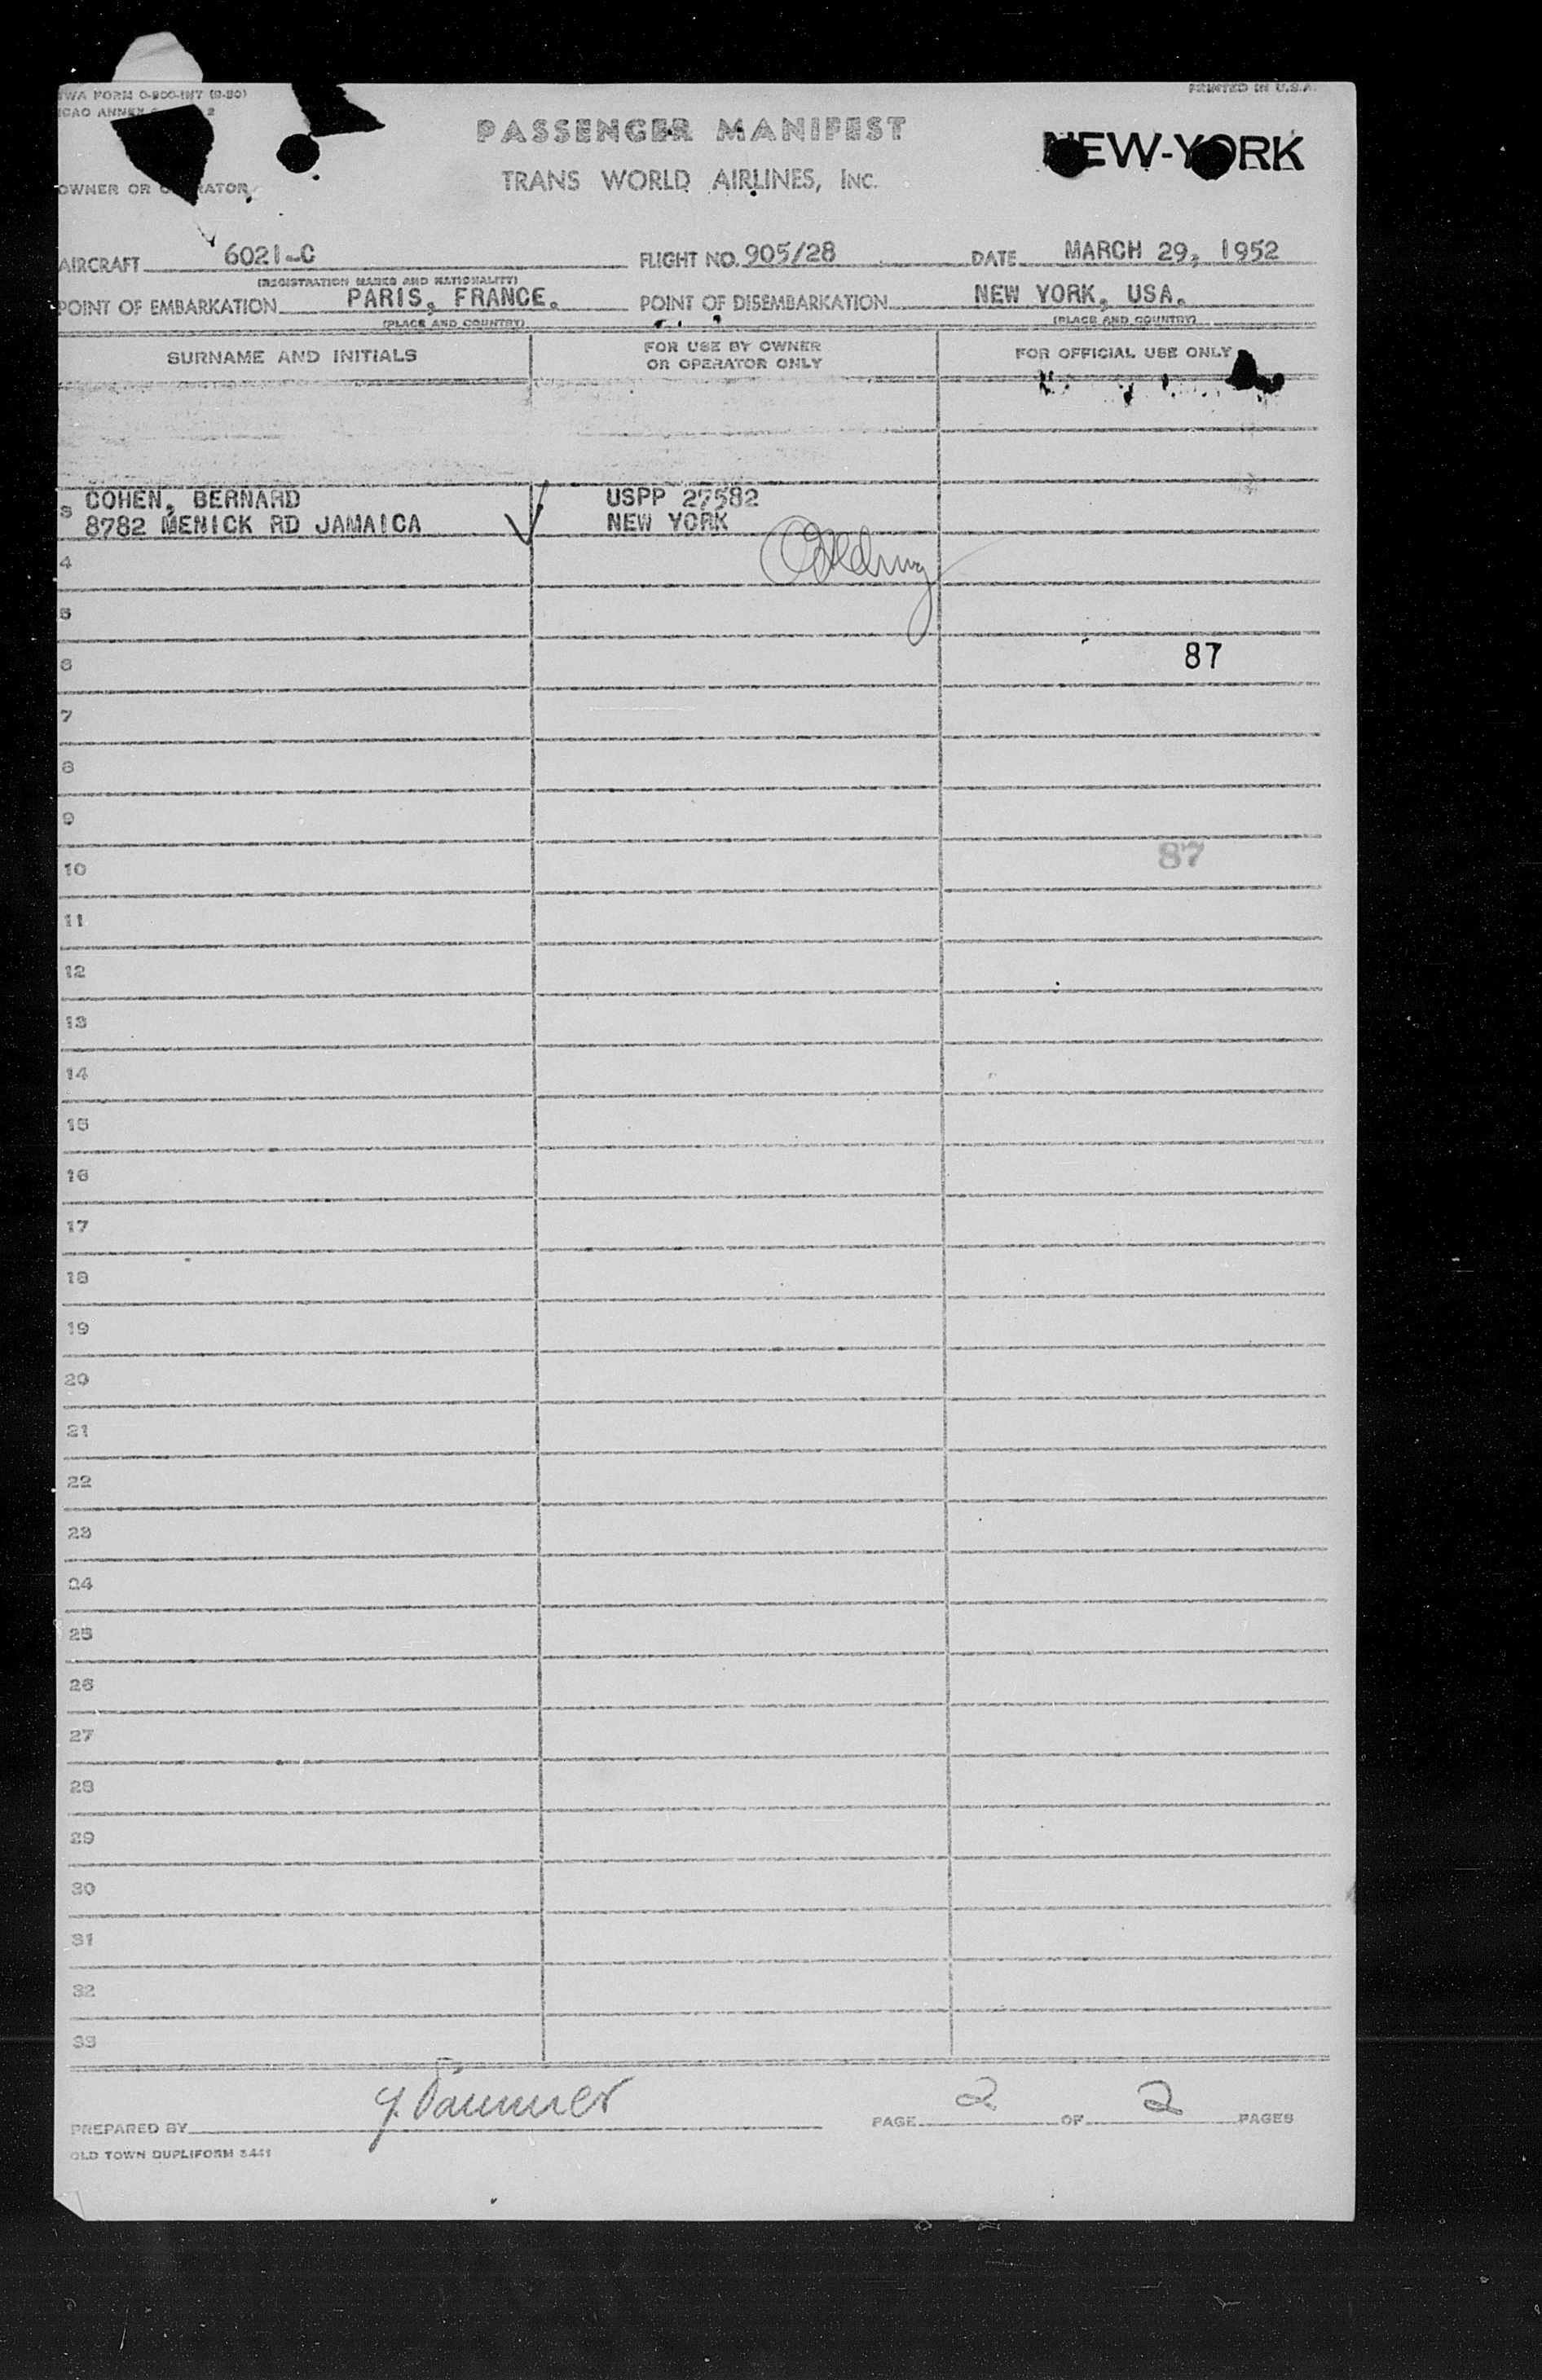 TWA FORM O-900-INT (9-50)
PRINTED IN U.S.A.
ICAO ANNEX 2
PASSENGER MANIFEST
NEW-YORK
TRANS WORLD AIRLINES, INC.
OWNER OR OPERATOR
AIRCRAFT 6021-C FLIGHT NO. 905/28 DATE MARCH 29, 1952
(REGISTRATION MARKS AND NATIONALITY)
POINT OF EMBARKATION PARIS, FRANCE. POINT OF DISEMBARKATION NEW YORK, USA.
(PLACE AND COUNTRY) (PLACE AND COUNTRY)
SURNAME AND INITIALS FOR USE BY OWNER OR OPERATOR ONLY FOR OFFICIAL USE ONLY
3 COHEN, BERNARD USPP 27582
8782 MENICK RD JAMAICA NEW YORK
4
5
6 87
7
8
9
10 87
11
12
13
14
15
16
17
18
19
20
21
22
23
24
25
26
27
28
29
30
31
32
33
PREPARED BY PAGE 2 OF 2 PAGES
OLD TOWN DUPLIFORM 3441